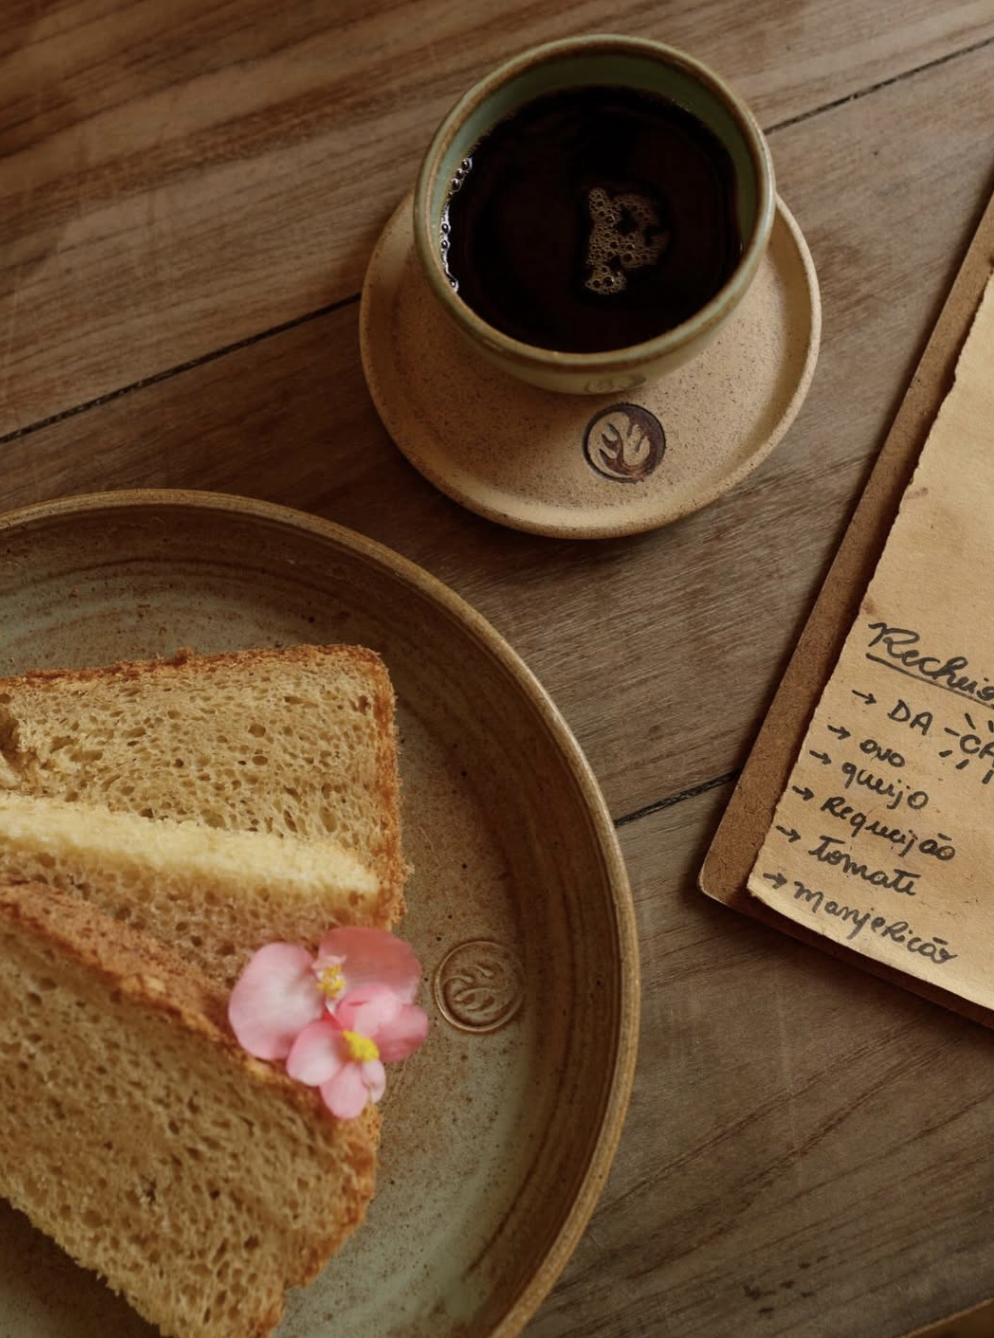 → DA
→ ovo
→ queijo
→ Requeijão
→ tomate
→ manjericão